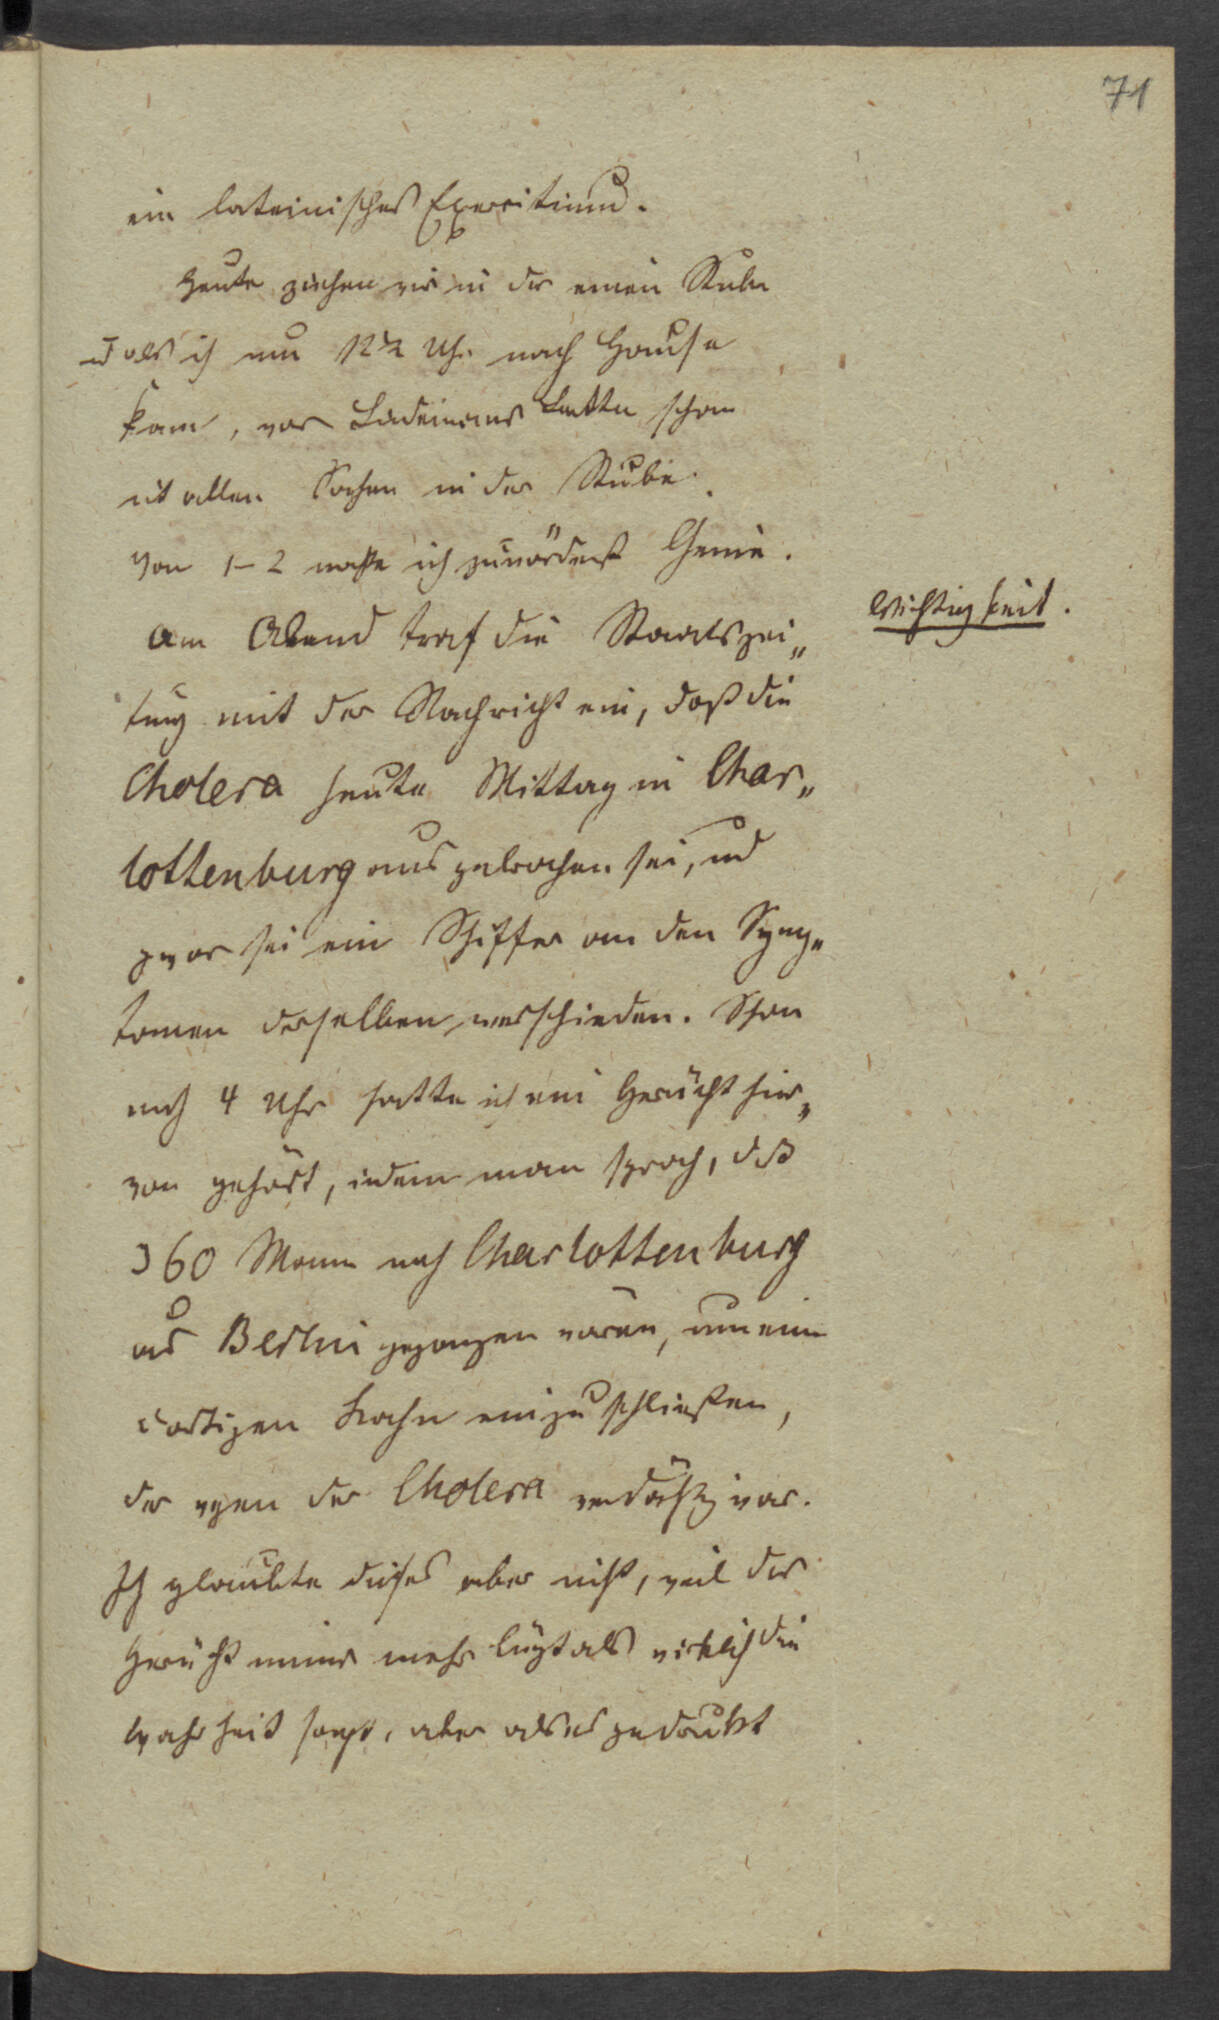 71
ein lateinisches Exercitium.
Heute ziehen wir in die eine Stube
und als ich um 12½ Uhr nach Hause
kam, war schon
mit allen Sachen in der Stube.
Von 1-2 machte ich zuvörderst Genie.
Wichtigkeit.
Am Abend traf die Staatszei„
tung mit der Nachricht ein, daß die
Cholera heute Mittag in Char„
lottenburg ausgebrochen sei, und
zwar sei ein Schiffer an den Symp„
tomen derselben verschieden. Schon
nach 4 Uhr hatte ich ein Gerücht hier„
von gehört, indem man sprach, daß
360 Mann nach Charlottenburg
aus Berlin gegangen wären, um einen
dortigen Kahn einzuschließen,
der wegen der Cholera verdächtig war.
Ich glaubte dieses aber nicht, weil das
Gerücht immer mehr lügt als wirklich die
Wahrheit sagt, aber als es gedruckt